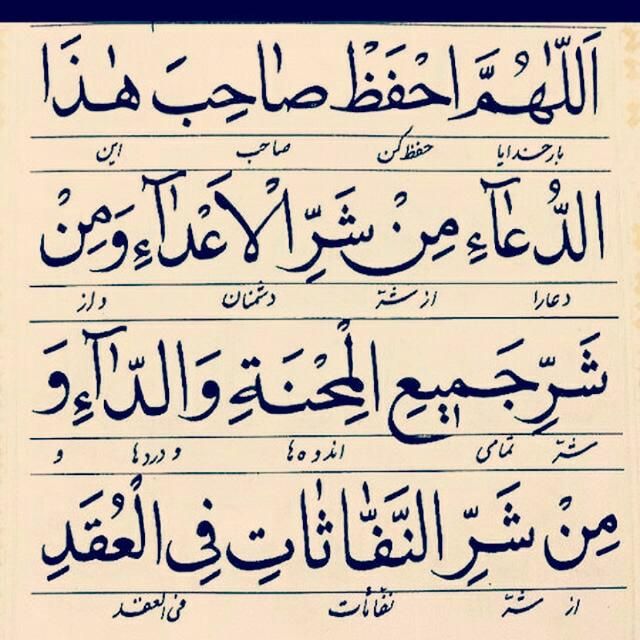 اَللّٰهُمَّ احْفَظْ صاحِبَ هٰذَا
بارخدایا حفظ کن صاحب این
الدُّعآءِ مِنْ شَرِّ الْاَعْدآءِ وَمِنْ
دعارا از شرّ دشمنان و از
شَرِّ جَمیعِ الْمِحْنَةِ وَالدّآءِ وَ
شرّ تمامی اندوه‌ها و دردها و
مِنْ شَرِّ النَّفّاثاتِ فِی الْعُقَدِ
از شرّ نفّاثات فی العقد